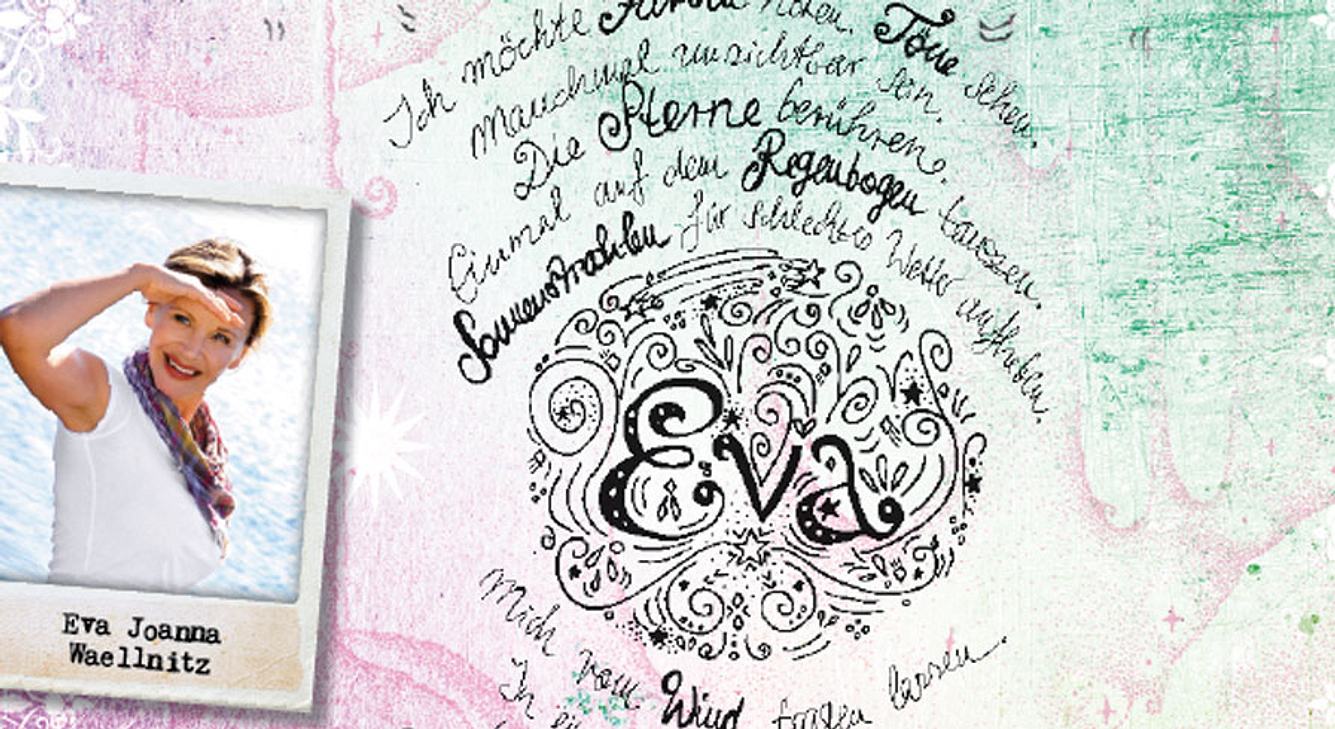 Ich möchte Farben hören. Töne sehen.
Manchmal unsichtbar sein.
Die Sterne berühren.
Einmal auf dem Regenbogen tanzen.
Sonnenstrahlen für schlechtes Wetter aufheben.
Eva
Mich vom Wind tragen lassen.
In
Eva Joanna
Waellnitz